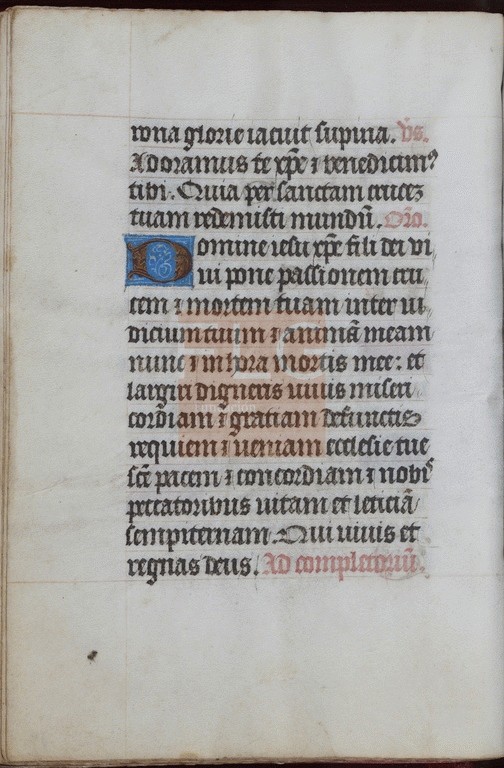 rona glorie iacuit supina. Vs.
Adoramus te xpe ⁊ benedicimꝰ
tibi. Quia per sanctam crucez
tuam redemisti mundū. Oro.
Domine iesu xpe fili dei vi
ui pone passionem cru
cem ⁊ mortem tuam inter iu
dicium tuum ⁊ animā meam
nunc ⁊ in hora mortis mee: et
largiri digneris uiuis miseri
cordiam ⁊ gratiam defunctis
requiem ⁊ ueniam ecclesie tue
scē pacem ⁊ concordiam ⁊ nobꝭ
peccatoribus uitam et leticiā
sempiternam. Qui uiuis et
regnas deus. Ad completoriū.